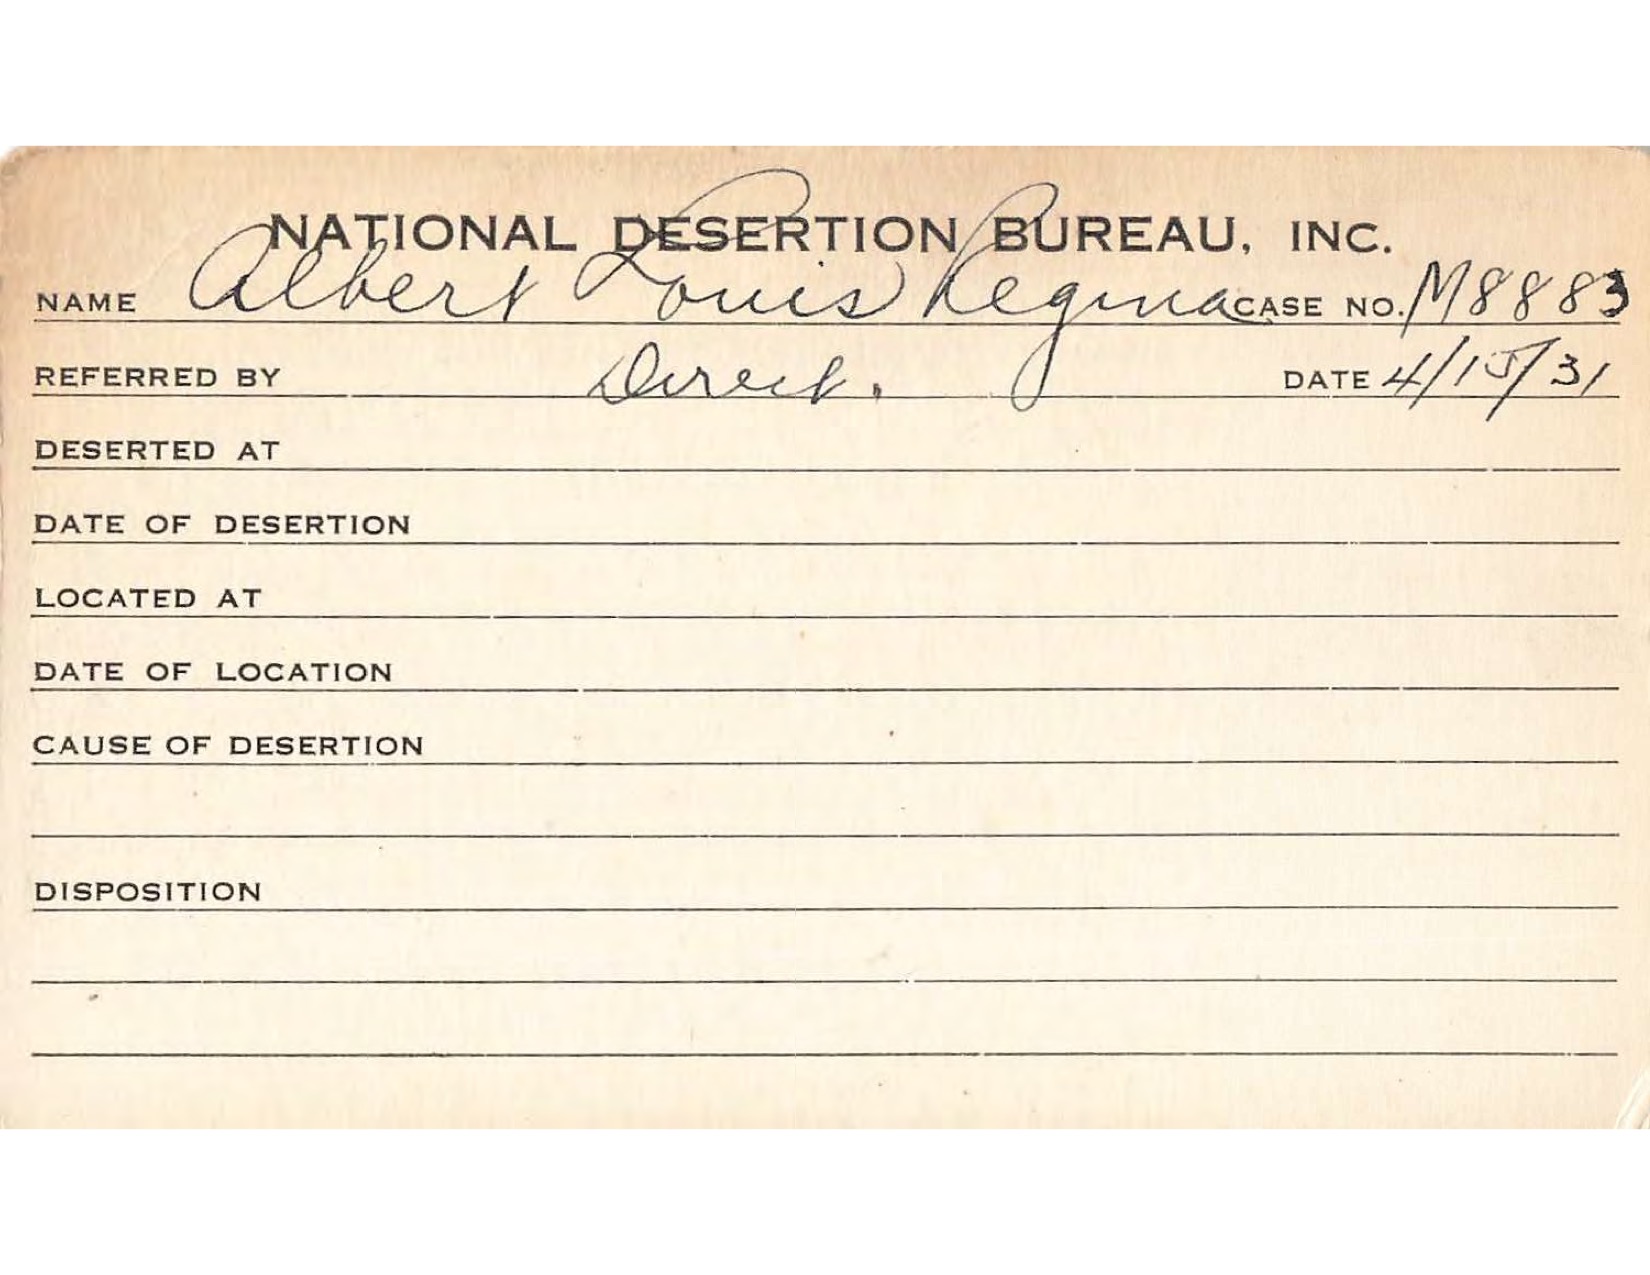 NATIONAL DESERTION BUREAU, INC.
NAME Albert Louis Regina CASE NO. M8883
REFERRED BY Direct. DATE 4/15/31
DESERTED AT
DATE OF DESERTION
LOCATED AT
DATE OF LOCATION
CAUSE OF DESERTION
DISPOSITION